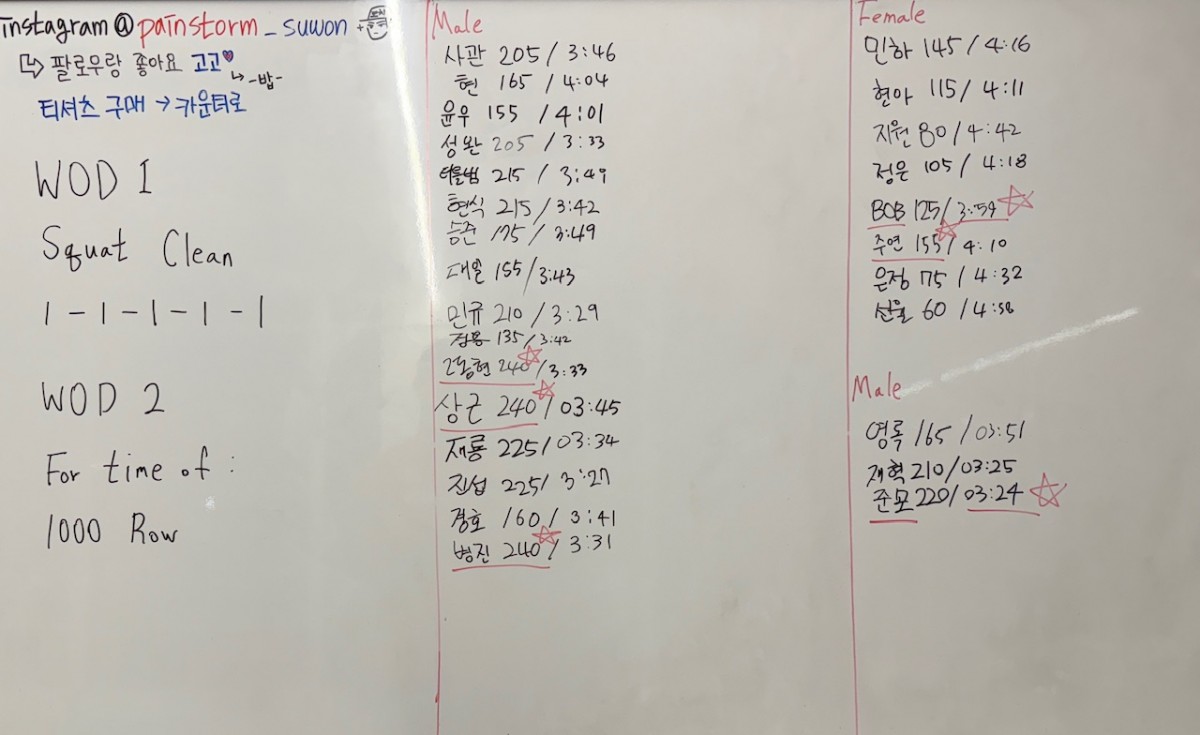 instagram @ painstorm_suwon
팔로우랑 좋아요 고고
-밥-
티셔츠 구매 → 카운터로
WOD 1
Squat Clean
1-1-1-1-1
WOD 2
For time of :
1000 Row
Male
사관 205 / 3:46
현 165 / 4:04
윤우 155 / 4:01
성완 205 / 3:33
215 / 3:49
현식 215 / 3:42
승준 175 / 3:49
대일 155 / 3:43
민규 210 / 3:29
135 / 3:42
240 / 3:33
상근 240 / 03:45
재룡 225 / 03:34
진섭 225 / 3:27
경호 160 / 3:41
병진 240 / 3:31
Female
민하 145 / 4:16
현아 115 / 4:11
지원 80 / 4:42
정은 105 / 4:18
BOB 125 / 3:59
주연 155 / 4:10
은정 75 / 4:32
60 / 4:58
Male
영록 165 / 03:51
재혁 210 / 03:25
준모 220 / 03:24